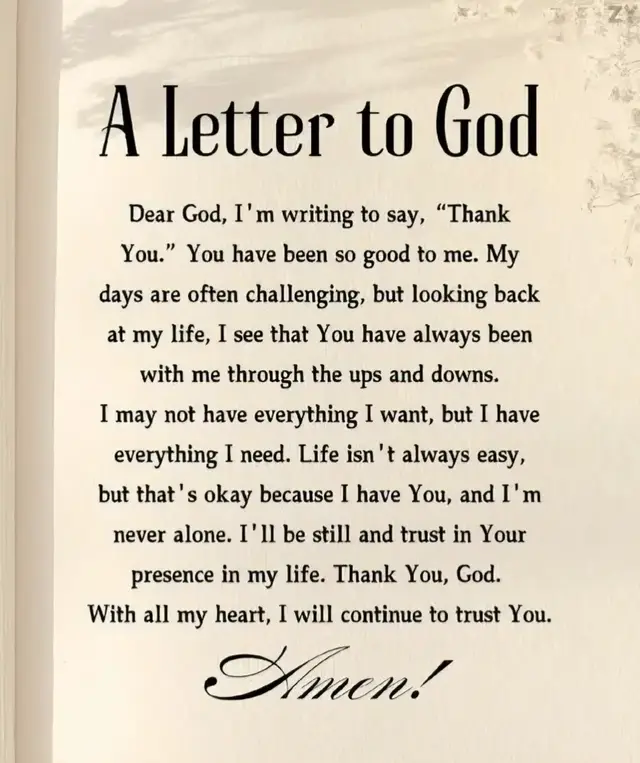 ZY
A Letter to God
Dear God, I'm writing to say, “Thank
You.” You have been so good to me. My
days are often challenging, but looking back
at my life, I see that You have always been
with me through the ups and downs.
I may not have everything I want, but I have
everything I need. Life isn't always easy,
but that's okay because I have You, and I'm
never alone. I'll be still and trust in Your
presence in my life. Thank You, God.
With all my heart, I will continue to trust You.
Amen!